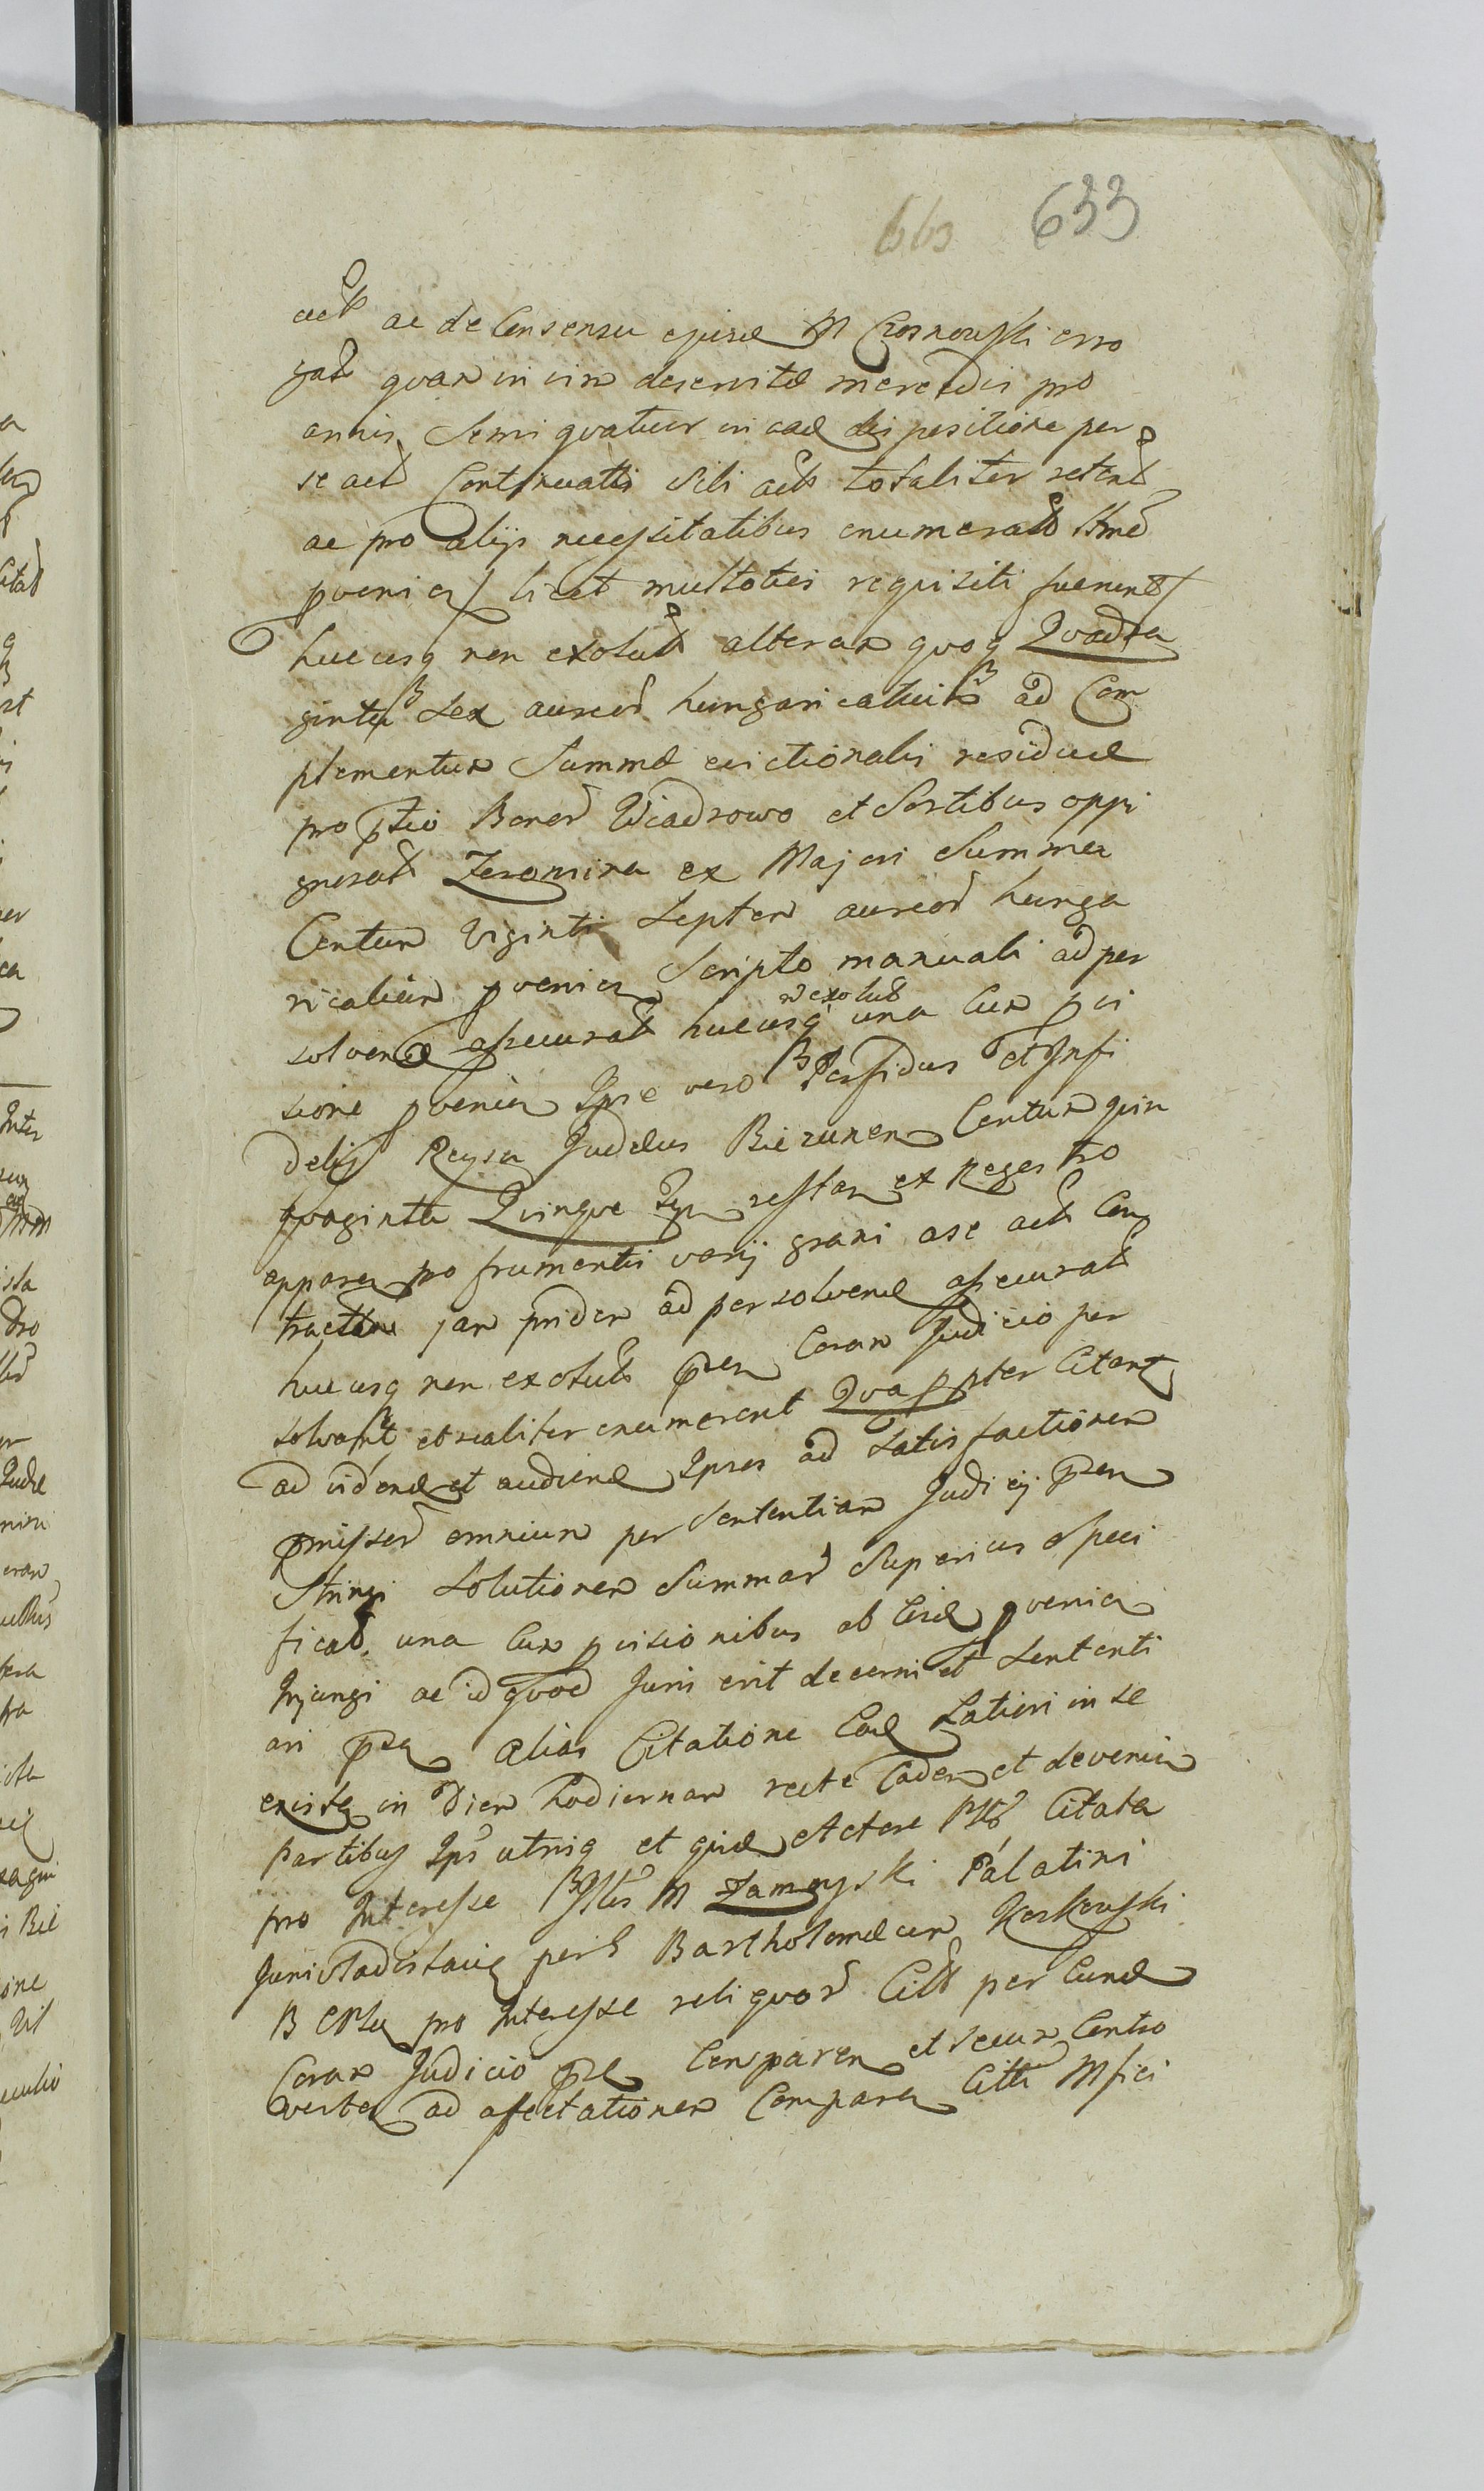 663 633
act ac de Consensu ejusd M Czosnowski erro
gat quam in vim deservitæ mercedis pro
annis Semi quatuor in ead dispositione per
se act Continuatis Sibi act totaliter retent
ac pro alijs necessitatibus enumerat Smæ
pvenien / licet multoties requisiti fuerint /
hucusq non exolut alteram quoq Quadra
ginta Sex aureor hungaricaliu ad Com
plementum Summæ evictionalis residuæ
pro ptio Bonor Wiadrowo et Sortibus oppi
gnorat Zeromina ex Majori Summa
Centum Viginti Septem aureor hunga
ricalium pvenien Scripto manuali ad per
solvend assecurat hucusq n exolut una cum pvi
sione pvenien Ipse vero Perfidus et Infi
delis Reysa Judæus Biezunen Centum quin
quaginta Quinque restan ex Regestro
apparen pro frumentis varij grani a se act Con
tractis jam pridem ad persolvend assecurat
hucusq non exolut pten Coram Judicio per
solvant et realiter enumerent Qua ppter Citant
ad vidend et audiend Ipsos ad Satisfactionem
pmissor omnium per Sententiam Judicij pten
Stringi Solutionem Summar Superius Speci
ficat una Cum pvisionibus ab eisd pvenien
Injungi ac id quod Juris erit decerni et Sententi
ari pten alias Citatione Ead Latiori in se
existen in Diem hodiernam recte Caden et devenien
Partibus Ips utrisq et quid Actore Citata
pro Interesse M Zamoyski Palatini
Juni Vladislavien per G Bartholomæum Koskowski
pro Interesse reliquor Citt per Eund
Coram Judicio Comparen et Secum Contro
verten ad affectationem Comparen Citti Mfici